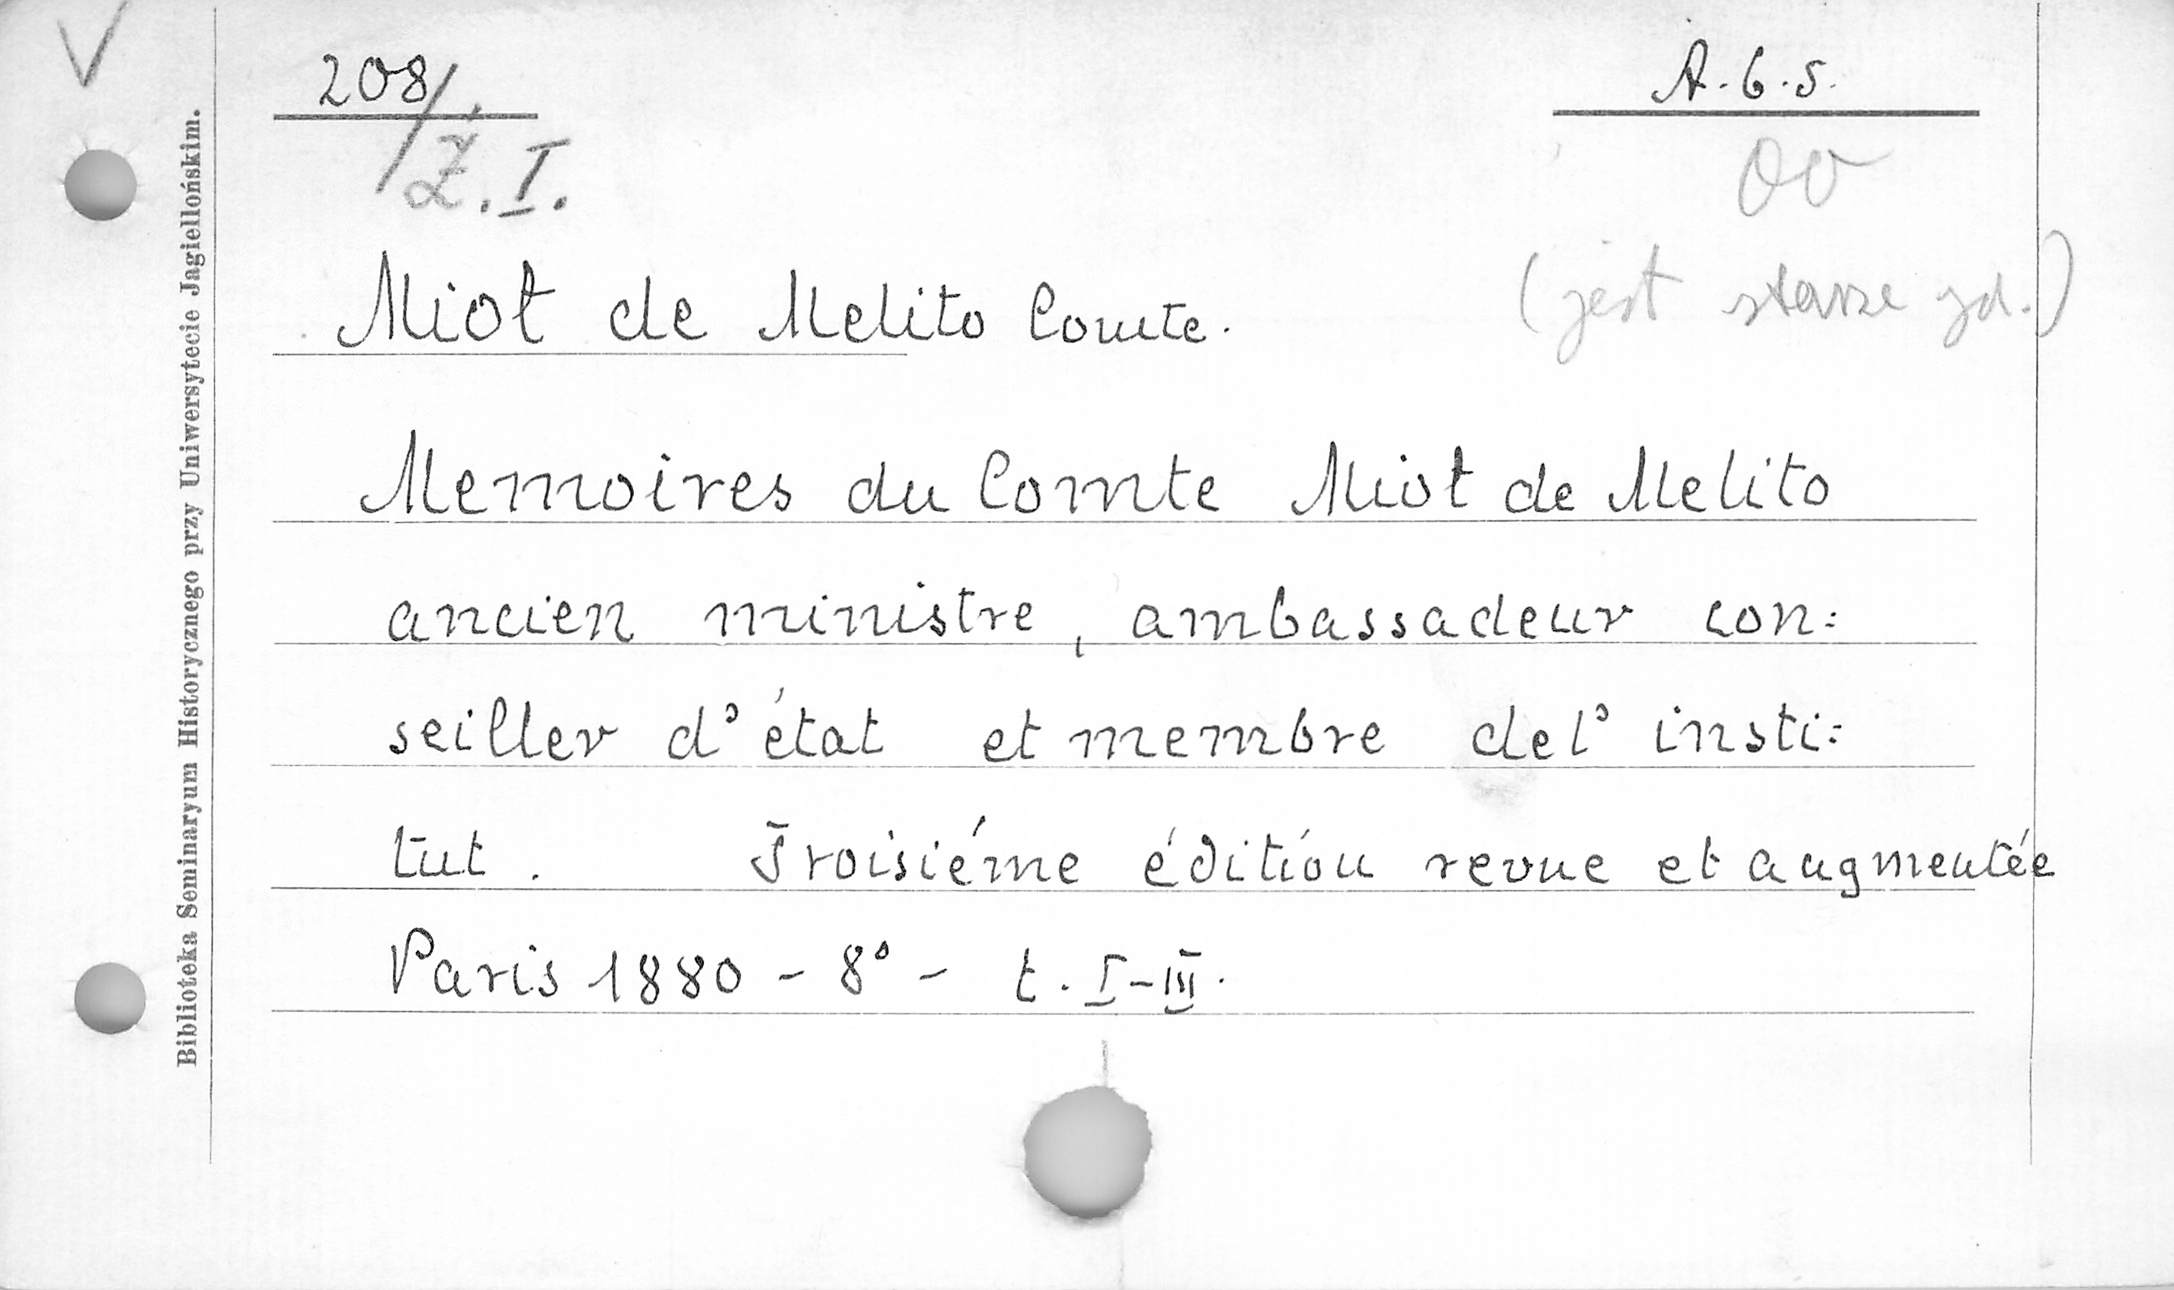 V
208/Ż.I.
A.6.5.
00
(jest starsze yd.)
Miot de Melito Comte.
Memoires du Comte Miot de Melito
ancien ministre, ambassadeur con=
seiller d'état et membre de l' insti=
tut. Troisiéme éditión revue et augmentée
Paris 1880 - 8° - t. I-III.
Biblioteka Seminaryum Historycznego przy Uniwersytecie Jagiellońskim.